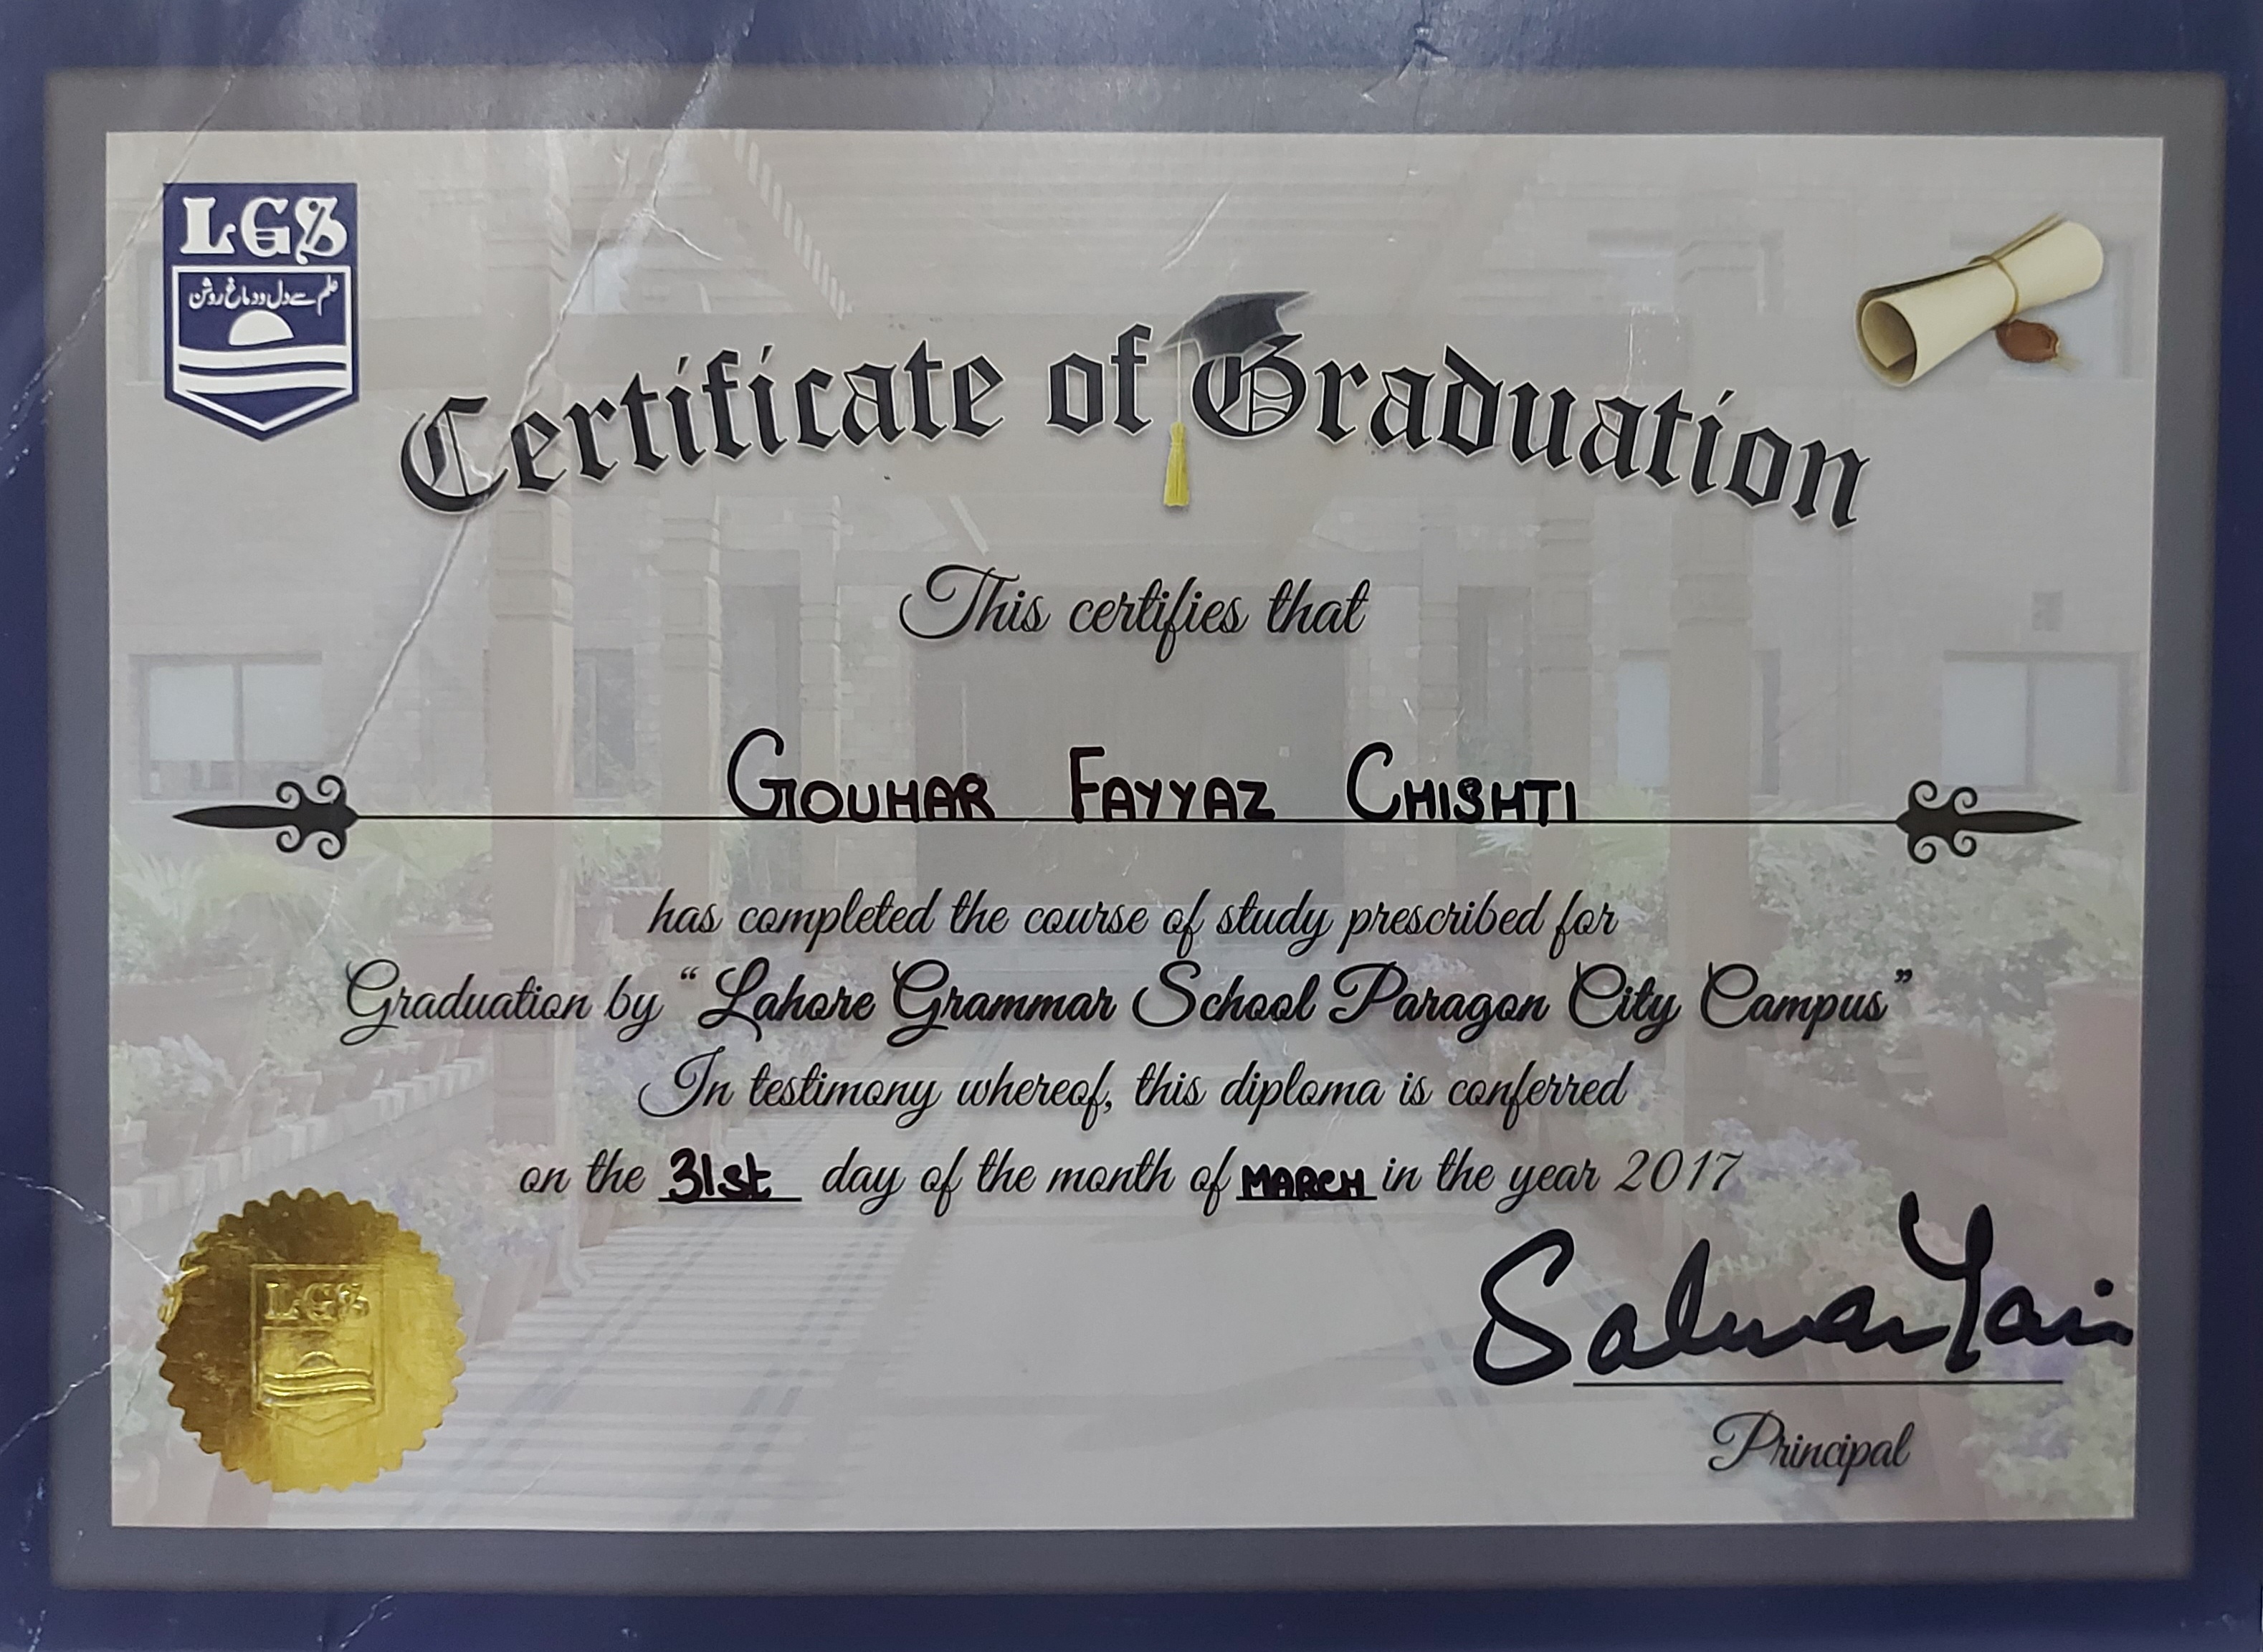 LGS
علم سے دل و دماغ روشن
Certificate of Graduation
This certifies that
GOUHAR FAYYAZ CHISHTI
has completed the course of study prescribed for
Graduation by “Lahore Grammar School Paragon City Campus”
In testimony whereof, this diploma is conferred
on the 31st day of the month of MARCH in the year 2017
LGS
Principal